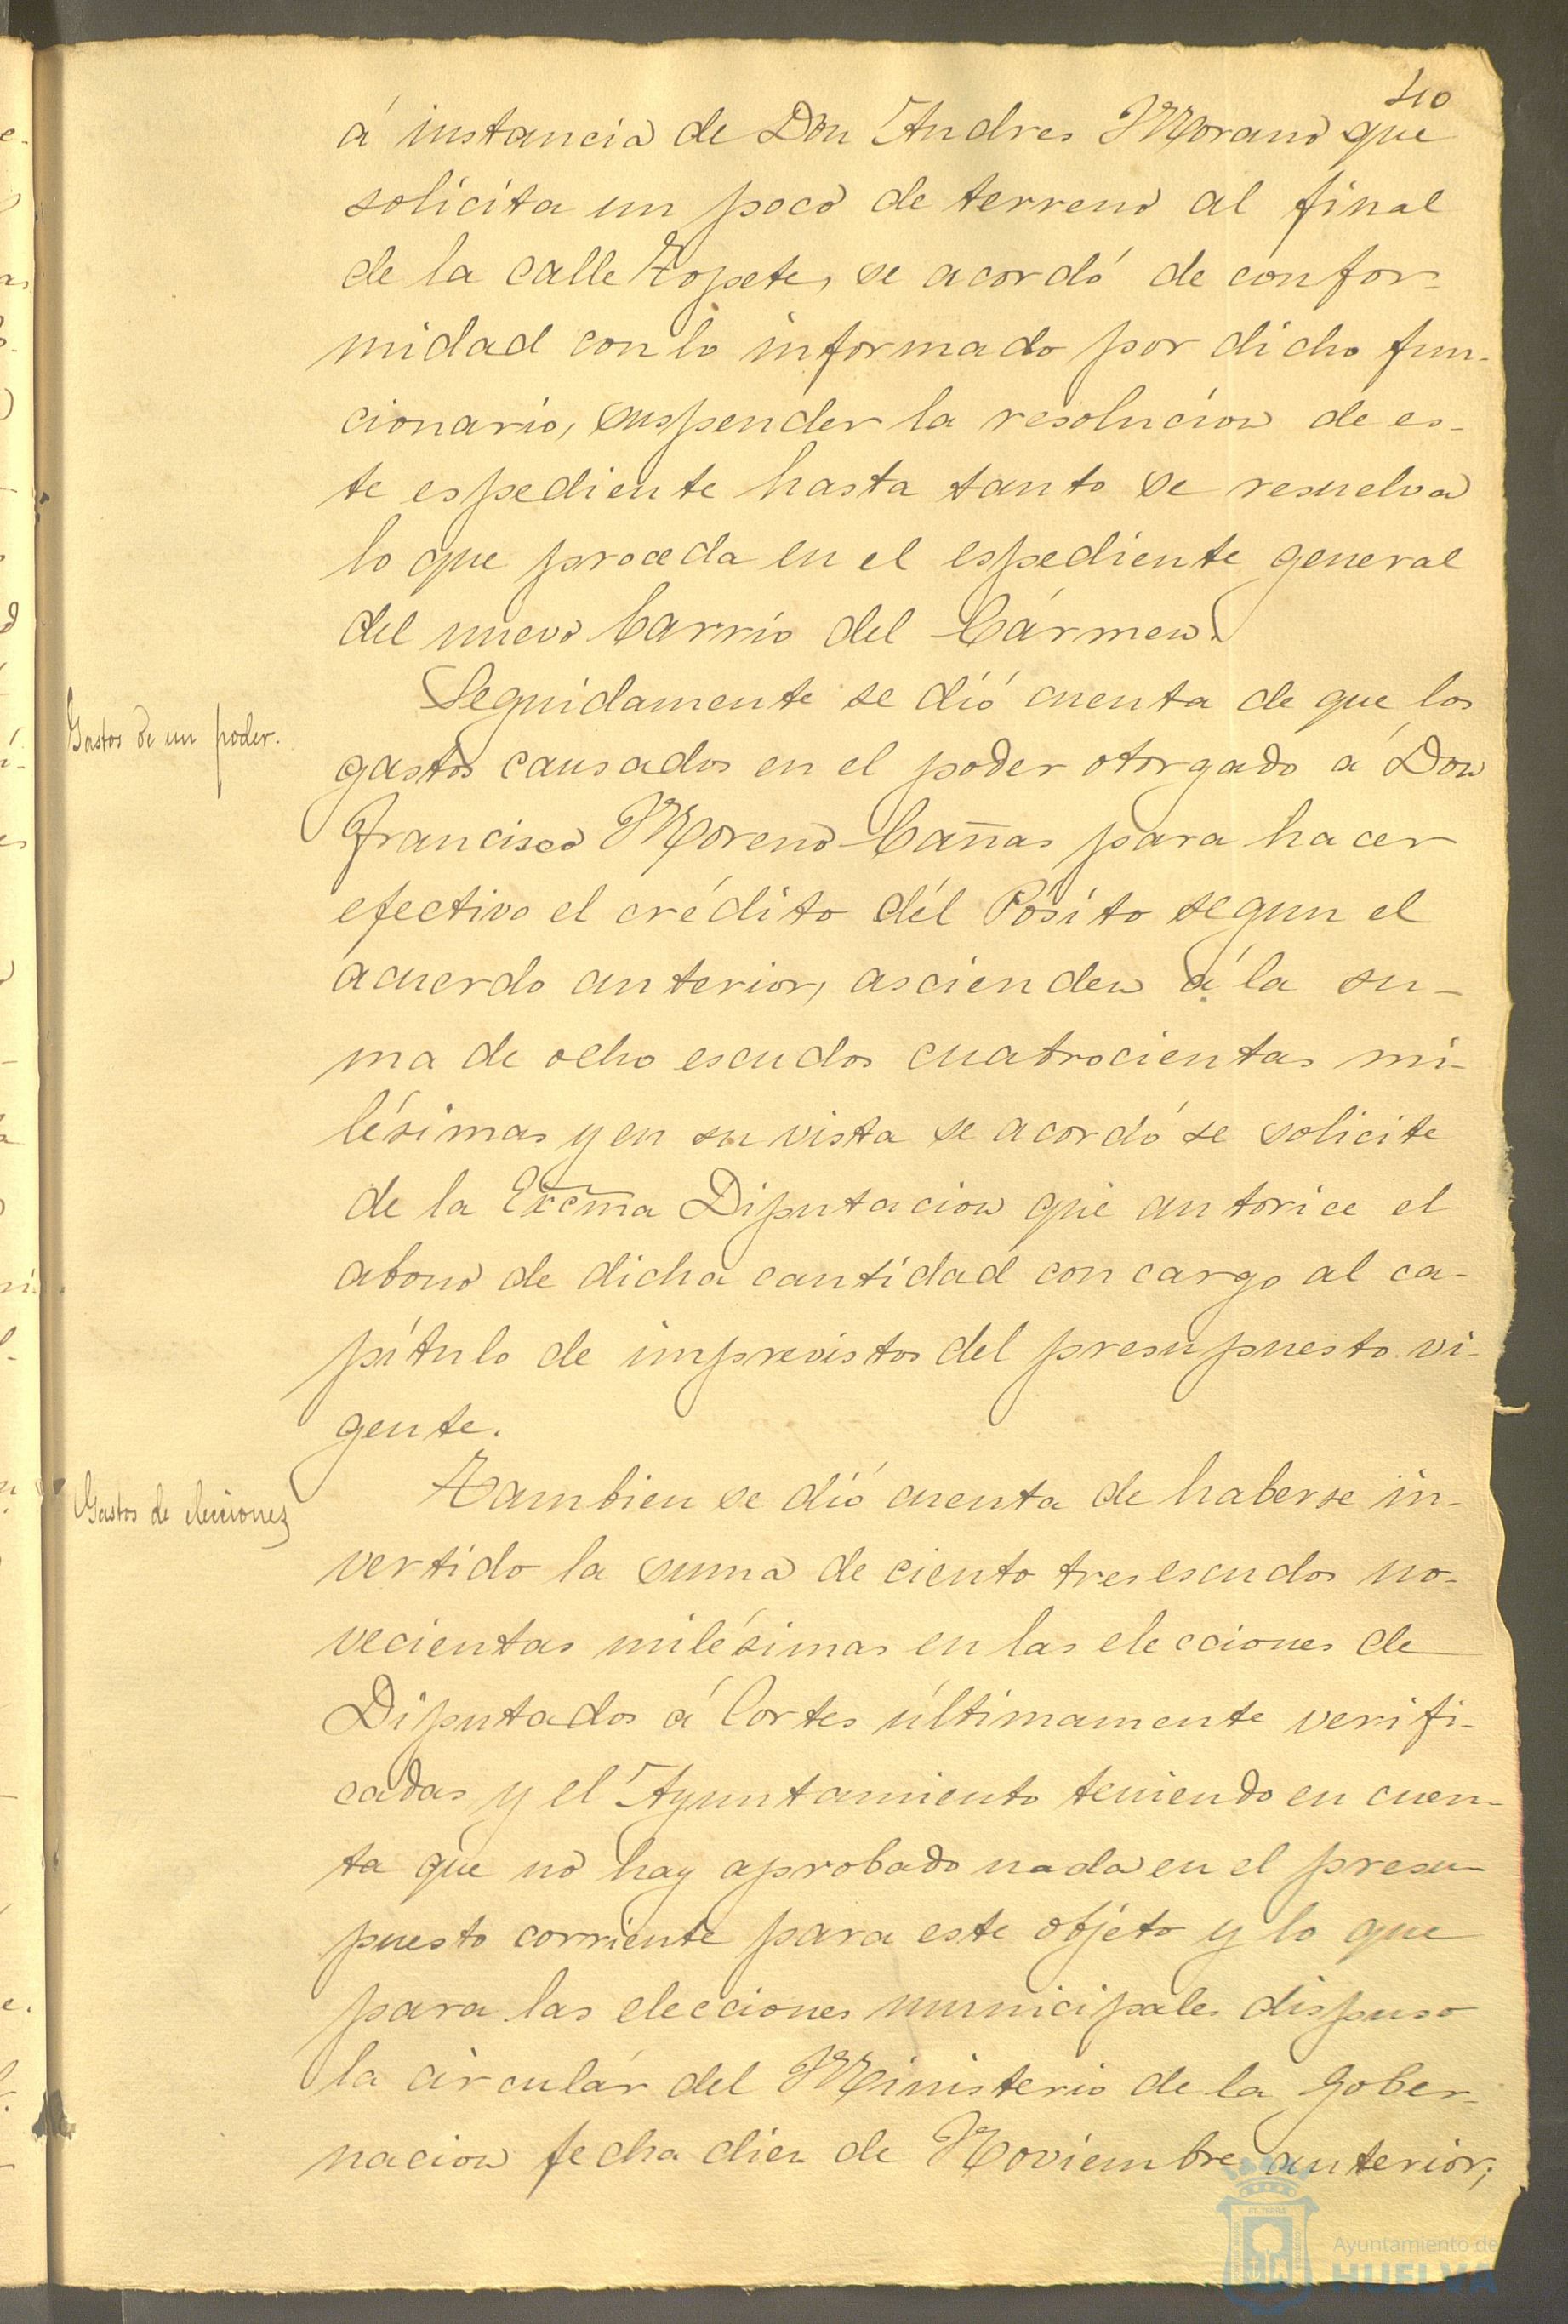 40
á instancia de Don Andres Morano que
solicita un poco de terreno al final
de la calle Topete, se acordó de confor=
midad con lo informado por dicho fun-
cionario, suspender la resolucion de es-
te espediente hasta tanto se resuelva
lo que proceda en el espediente general
del nuevo barrio del Cármen.
Gastos de un poder.
Seguidamente se dió cuenta de que los
gastos causados en el poder otorgado á Don
Francisco Moreno Cañas para hacer
efectivo el crédito del Pósito segun el
acuerdo anterior, ascienden á la su-
ma de ocho escudos cuatrocientas mi-
lésimas y en su vista se acordó se solicite
de la Excma Diputacion que autorice el
abono de dicha cantidad con cargo al ca-
pítulo de imprevistos del presupuesto vi-
gente.
Gastos de elecciones
Tambien se dió cuenta de haberse in-
vertido la suma de ciento tres escudos no-
vecientas milésimas en las elecciones de
Diputados á Cortes últimamente verifi-
cadas y el Ayuntamiento teniendo en cuen-
ta que no hay aprobado nada en el presu-
puesto corriente para este objéto y lo que
para las elecciones municipales dispuso
la circulár del Ministerio de la Gober-
nacion fecha diez de Noviembre anterior;
Ayuntamiento de
HUELVA